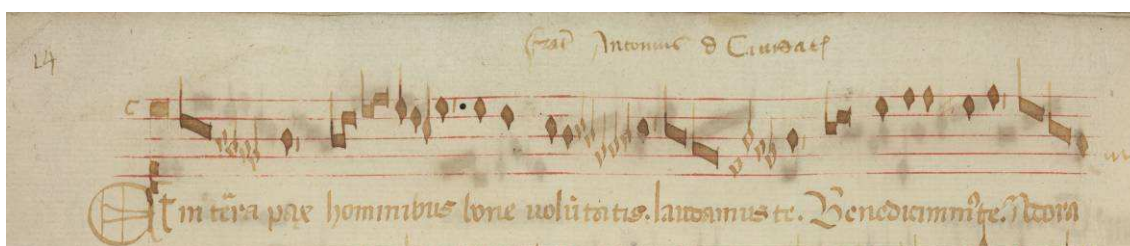 14
frat̄ Antonius d Ciuidat̄
Et in tēra pax hominibus bone uolūtatis. laudamus te. Benedicimus te. Adora